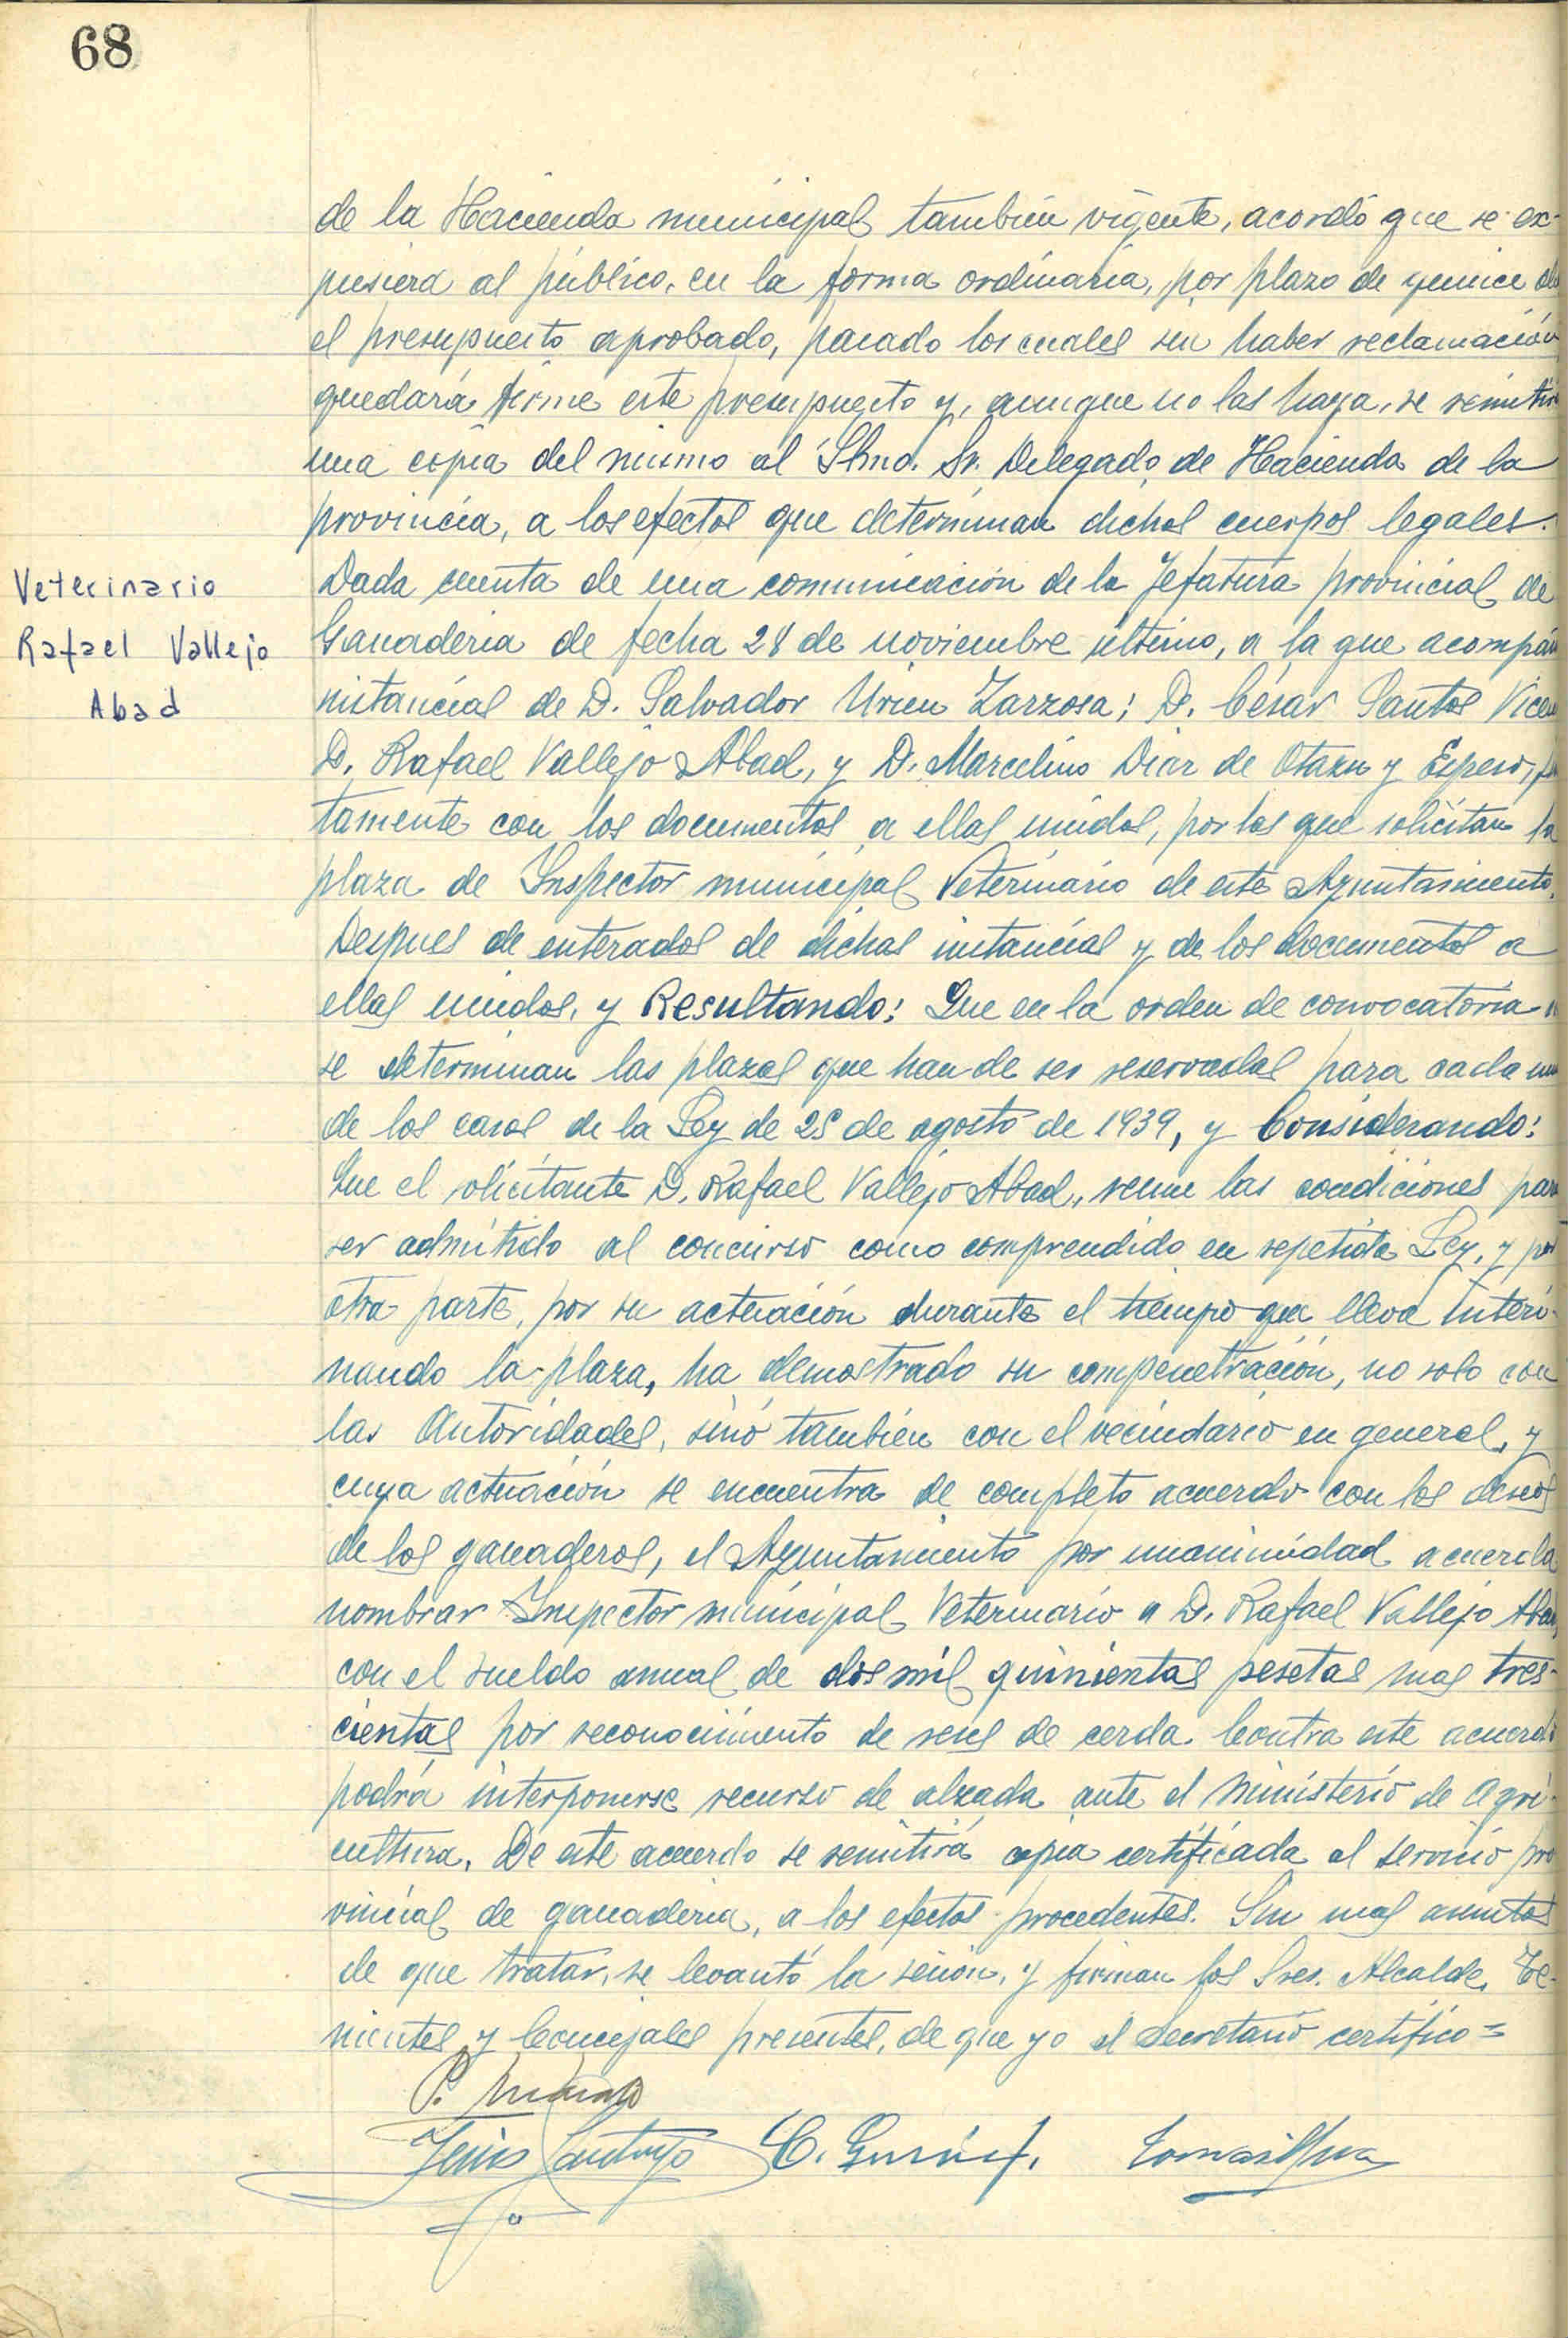 68
de la Hacienda municipal también vigente, acordó que se ex-
pusiera al público, en la forma ordinaria, por plazo de quince
el presupuesto aprobado, pasado los cuales sin haber reclamación
quedará firme este presupuesto y, aunque no las haya, se remitirá
una copia del mismo al Ilmo. Sr. Delegado de Hacienda de la
provincia, a los efectos que determinan dichos cuerpos legales.
Veterinario
Rafael Vallejo
Abad
Dada cuenta de una comunicación de la Jefatura provincial de
Ganaderia de fecha 28 de noviembre último, a la que acompañ
instancias de D. Salvador Urien Zarzosa; D. César Santos Vicen
D. Rafael Vallejo Abad, y D. Marcelino Diaz de Otazu y Espeso,
tamente con los documentos a ellas unidos, por los que solicitan la
plaza de Inspector municipal Veterinario de este Ayuntamiento.
Despues de enterados de dichas instancias y de los documentos a
ellas unidos, y Resultando: Que en la orden de convocatoria
se determinan las plazas que han de ser reservadas para cada uno
de los casos de la Ley de 25 de agosto de 1939, y Considerando:
Que el solicitante D. Rafael Vallejo Abad, reune las condiciones para
ser admitido al concurso como comprendido en repetida Ley, y por
otra parte, por su actuación durante el tiempo que lleva interi-
nando la plaza, ha demostrado su compenetración, no solo con
las Autoridades, sinó también con el vecindario en general, y
cuya actuación se encuentra de completo acuerdo con los deseos
de los ganaderos, el Ayuntamiento por unanimidad acuerda
nombrar Inspector municipal Veterinario a D. Rafael Vallejo Abad,
con el sueldo anual de dos mil quinientas pesetas mas tres-
cientas por reconocimiento de reses de cerda. Contra este acuerdo
podrá interponerse recurso de alzada ante el Ministerio de Agri-
cultura. De este acuerdo se remitirá copia certificada al servicio pro
vincial de ganaderia, a los efectos procedentes. Sin mas asuntos
de que tratar, se levantó la sesión, y firman los Sres. Alcalde, Te-
nientes y Concejales presentes, de que yo el Secretario certifico=